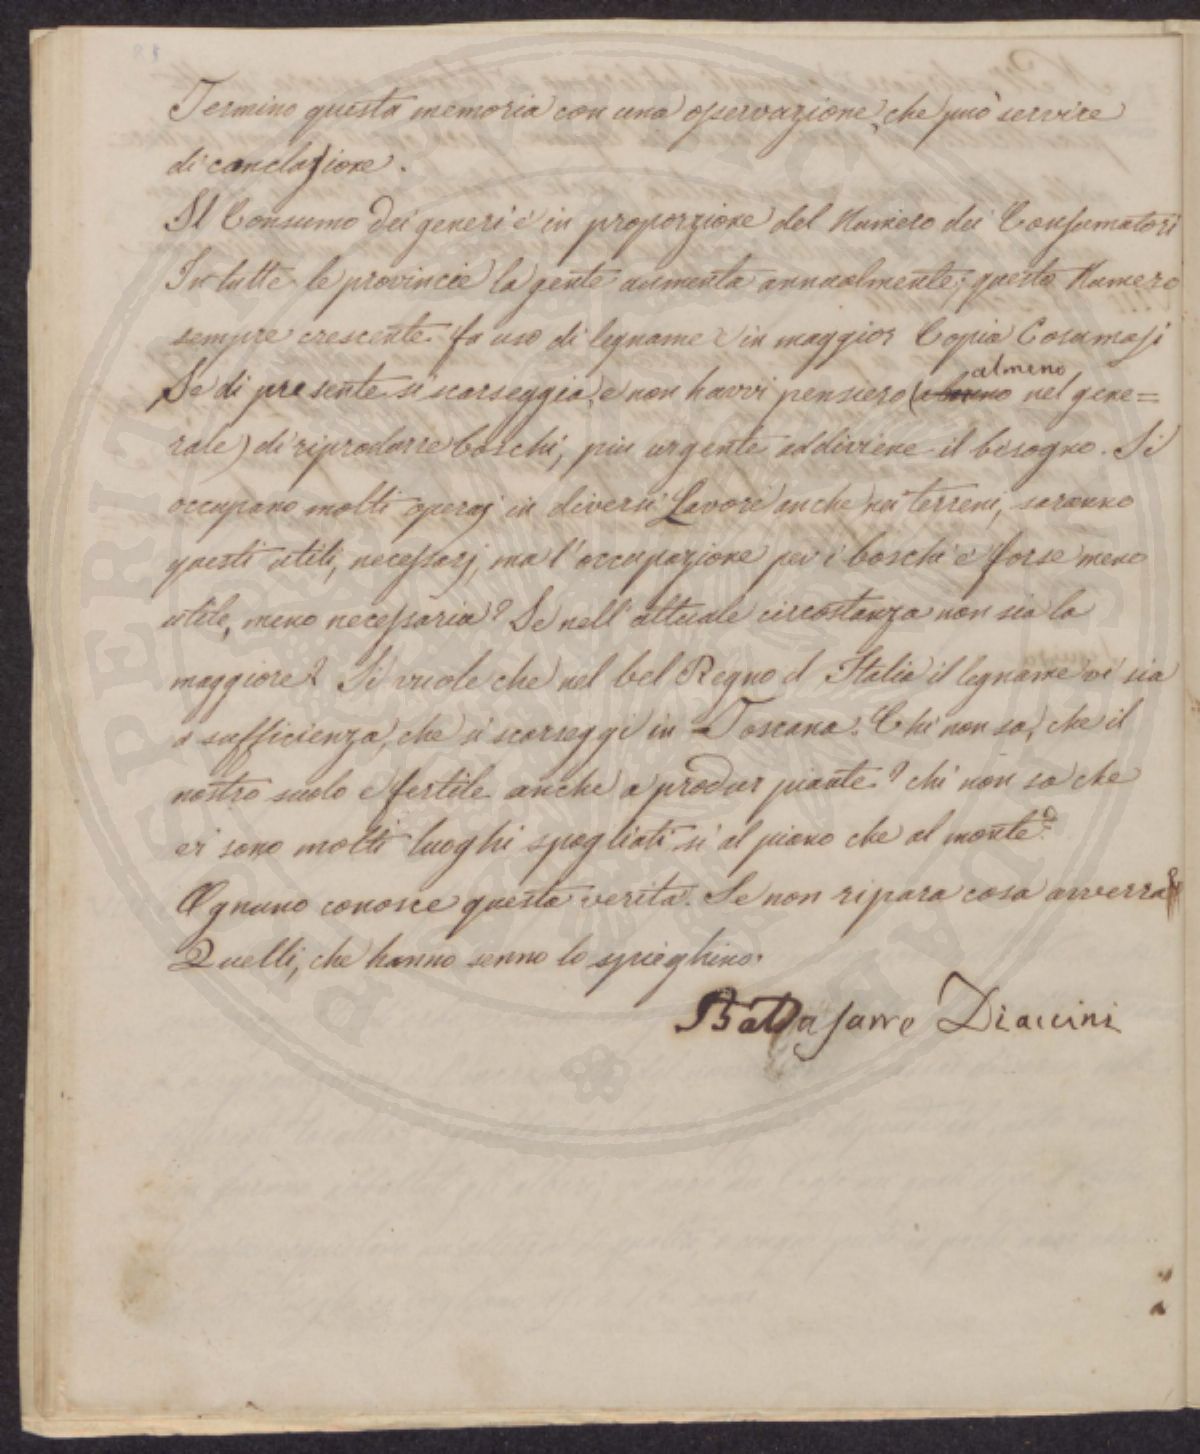 Termino questa memoria con una osservazione, che può servire
di conclusione.
Il Consumo dei generi è in proporzione del Numero dei Consumatori
In tutte le provincie la gente aumenta annualmente; questo Numero
sempre crescente fa uso di legname e in maggior Copia Cosumasi
Se di presente si scarseggia, e non havvi pensiero (almeno nel gene=
rale) di riprodurre boschi, più urgente addiviene il bisogno. Si
occupano molti operaj in diversi Lavori anche nei terreni, saranno
questi utili, necessarj, ma l'occupazione per i boschi è forse meno
utile, meno necessaria? Se nell'attuale circostanza non sia la
maggiore? Si vuole che nel bel Regno d Italia il legname vi sia
a sufficienza, che si scarseggi in Toscana. Chi non sa, che il
nostro suolo è fertile anche a produr piante? chi non sa che
ci sono molti luoghi spogliati sì al piano che al monte?
Ognuno conosce questa verità. Se non ripara cosa avverrà?
Quelli, che hanno senno lo spieghino.
Baldassarre Diaccini